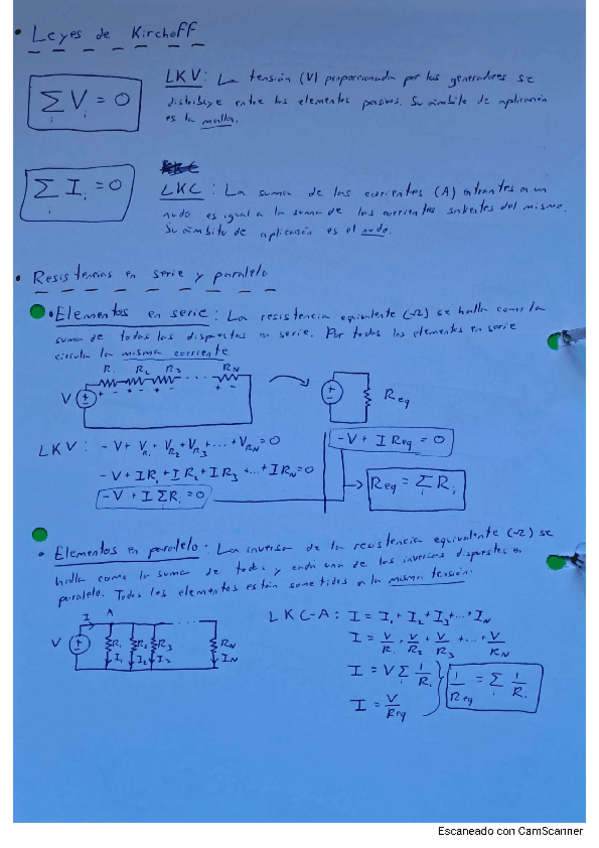 • Leyes de Kirchoff
∑ᵢ Vᵢ = 0
LKV: La tensión (V) proporcionada por los generadores se
distribuye entre los elementos pasivos. Su ámbito de aplicación
es la malla.
∑ᵢ Iᵢ = 0
LKC: La suma de las corrientes (A) entrantes a un
nudo es igual a la suma de las corrientes salientes del mismo.
Su ámbito de aplicación es el nudo.
• Resistencias en serie y paralelo
• Elementos en serie: La resistencia equivalente (Ω) se halla como la
suma de todas las dispuestas en serie. Por todos los elementos en serie
circula la misma corriente
R₁ R₂ R₃ ... R_N
+ - + - + -
V
Req
LKV: -V + V_R₁ + V_R₂ + V_R₃ + ... + V_R_N = 0
-V + IR₁ + IR₂ + IR₃ + ... + IR_N = 0
-V + I ∑Rᵢ = 0
-V + I Req = 0
Req = ∑ᵢ Rᵢ
• Elementos en paralelo: La inversa de la resistencia equivalente (Ω) se
halla como la suma de todas y cada una de las inversas dispuestas en
paralelo. Todos los elementos están sometidos a la misma tensión.
I A
V R₁ R₂ R₃ ... R_N
I₁ I₂ I₃ I_N
LKC-A: I = I₁ + I₂ + I₃ + ... + I_N
I = V/R₁ + V/R₂ + V/R₃ + ... + V/R_N
I = V ∑ᵢ 1/Rᵢ
I = V/Req
1/Req = ∑ᵢ 1/Rᵢ
Escaneado con CamScanner